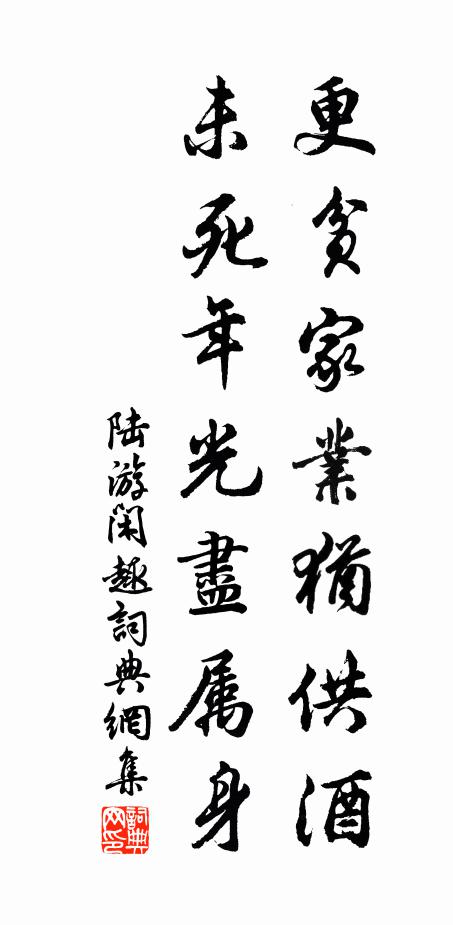 更貧家業猶供酒
未死年光盡属身
陆游閑趣詞典網集
詞典网印